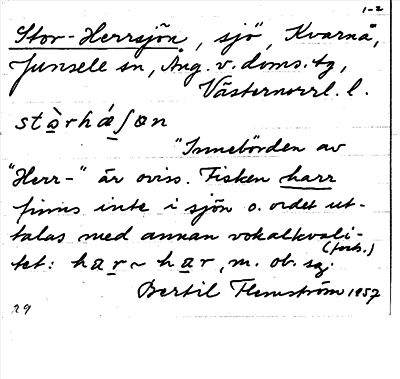 1-2
Stor-Herrsjön, sjö, Kvarnå,
Junsele sn, Ång. v. doms. tg,
Västernorrl. l.
stòrhǽʃøn
"Innebörden av
"Herr-" är oviss. Fisken harr
finns inte i sjön o. ordet ut-
talas med annan vokalkvali-
tet: har ~ har, m. ob. sg.
(forts.)
Bertil Flemström 1957
29